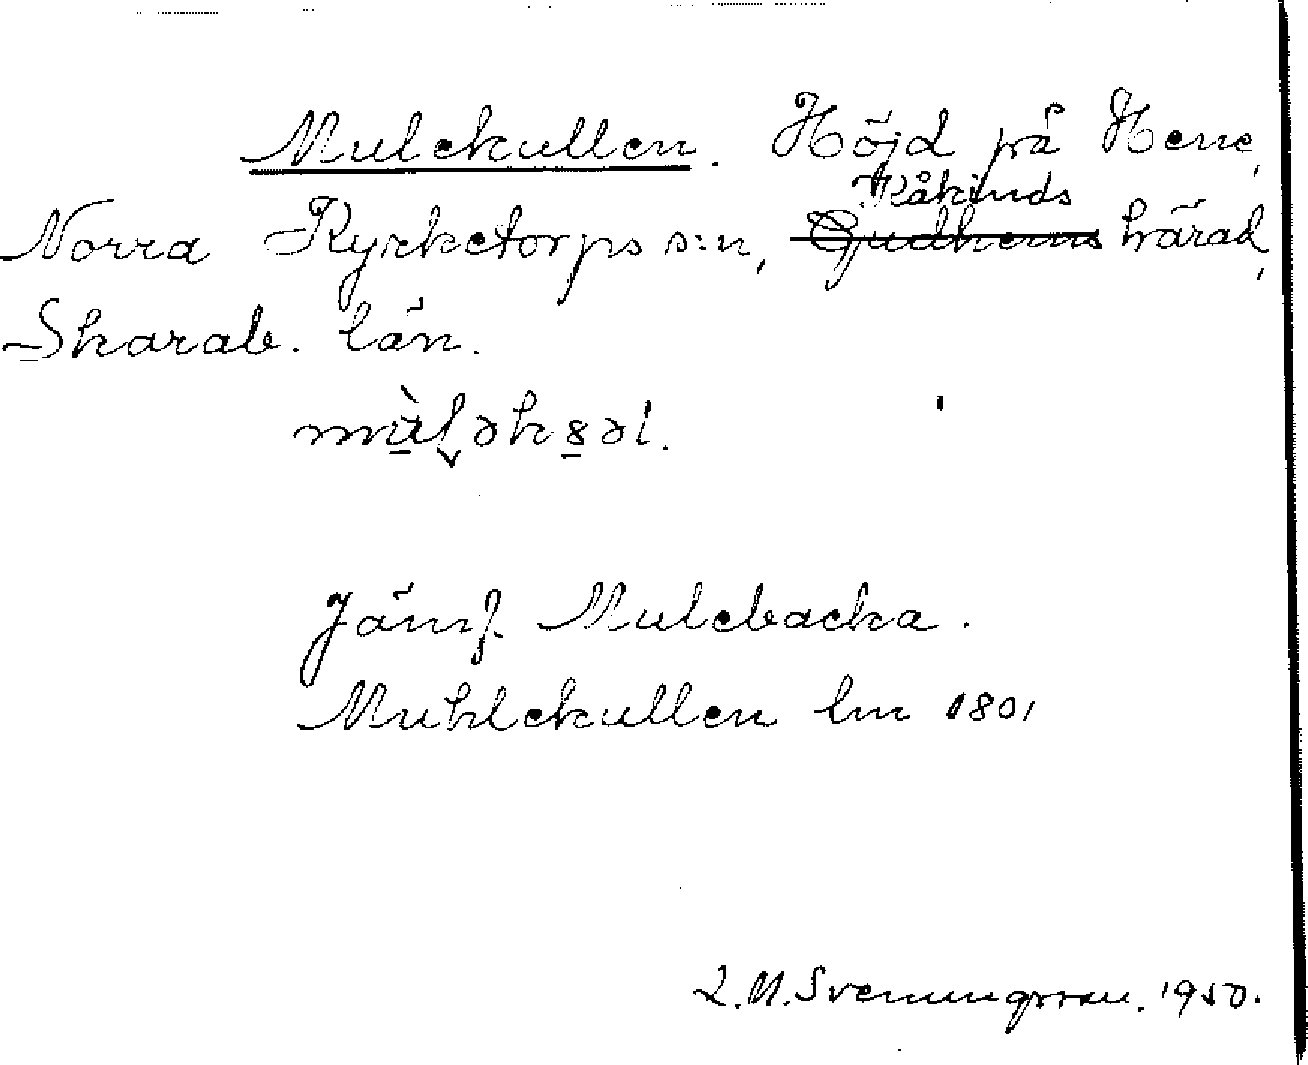 Mulekullen. Höjd på Hene,
Norra Kyrketorps s:n, Kåkinds Gudhems härad,
Skarab. län.
Jämf. Mulebacka.
Muhlekullen lm 1801
L.M. Svenungsson. 1950.